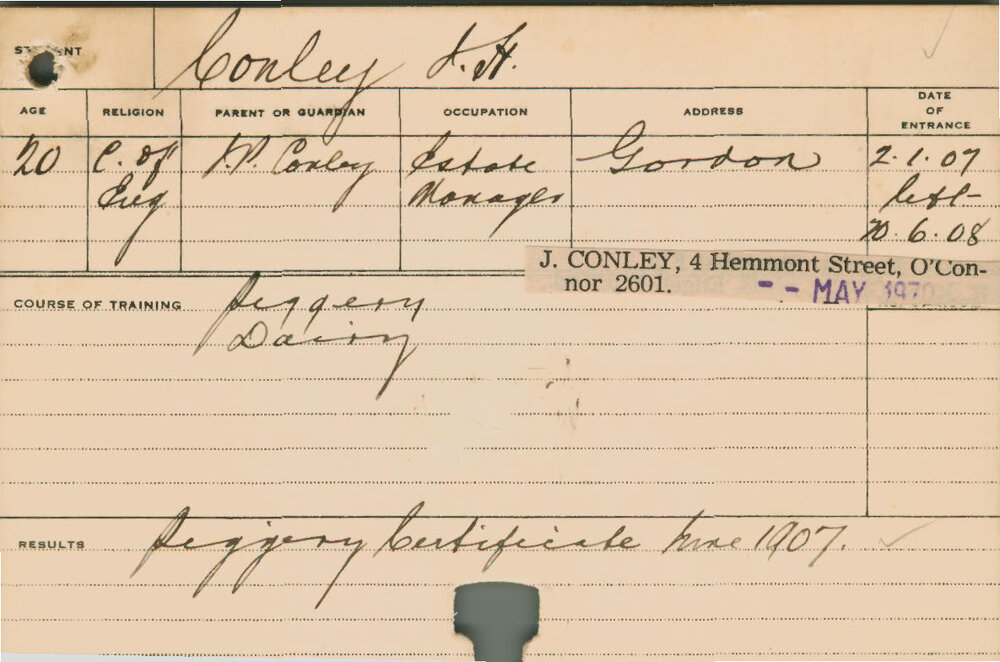 STUDENT Conley J. H.
AGE RELIGION PARENT OR GUARDIAN OCCUPATION ADDRESS DATE OF ENTRANCE
20 C. of J. P. Conley Estate Gordon 2.1.07
Eng Manager left
20.6.08
J. CONLEY, 4 Hemmont Street, O'Con-
nor 2601. -- MAY 1970
COURSE OF TRAINING Piggery
Dairy
RESULTS Piggery Certificate June 1907.